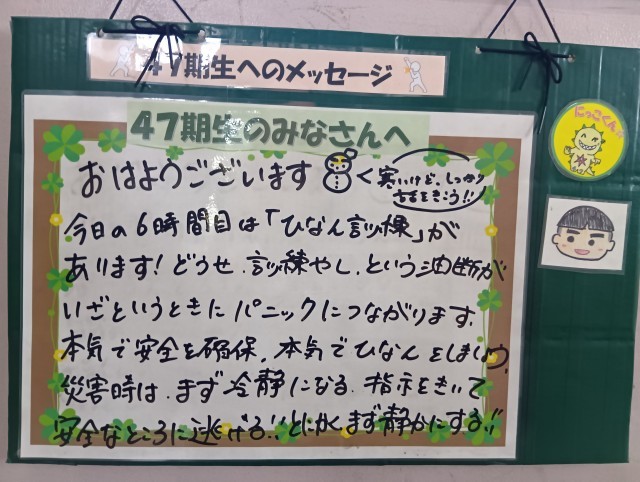 47期生へのメッセージ
47期生のみなさんへ
おはようございます
寒いけど、しっかり
話をきこう!!
今日の6時間目は「ひなん訓練」が
あります!どうせ、訓練やし、という油断が
いざというときにパニックにつながります。
本気で安全を確保、本気でひなんをしましょう。
災害時は、まず冷静になる。指示をきいて
安全なところに逃げる!!とにかくまず静かにする!!
にっこくん